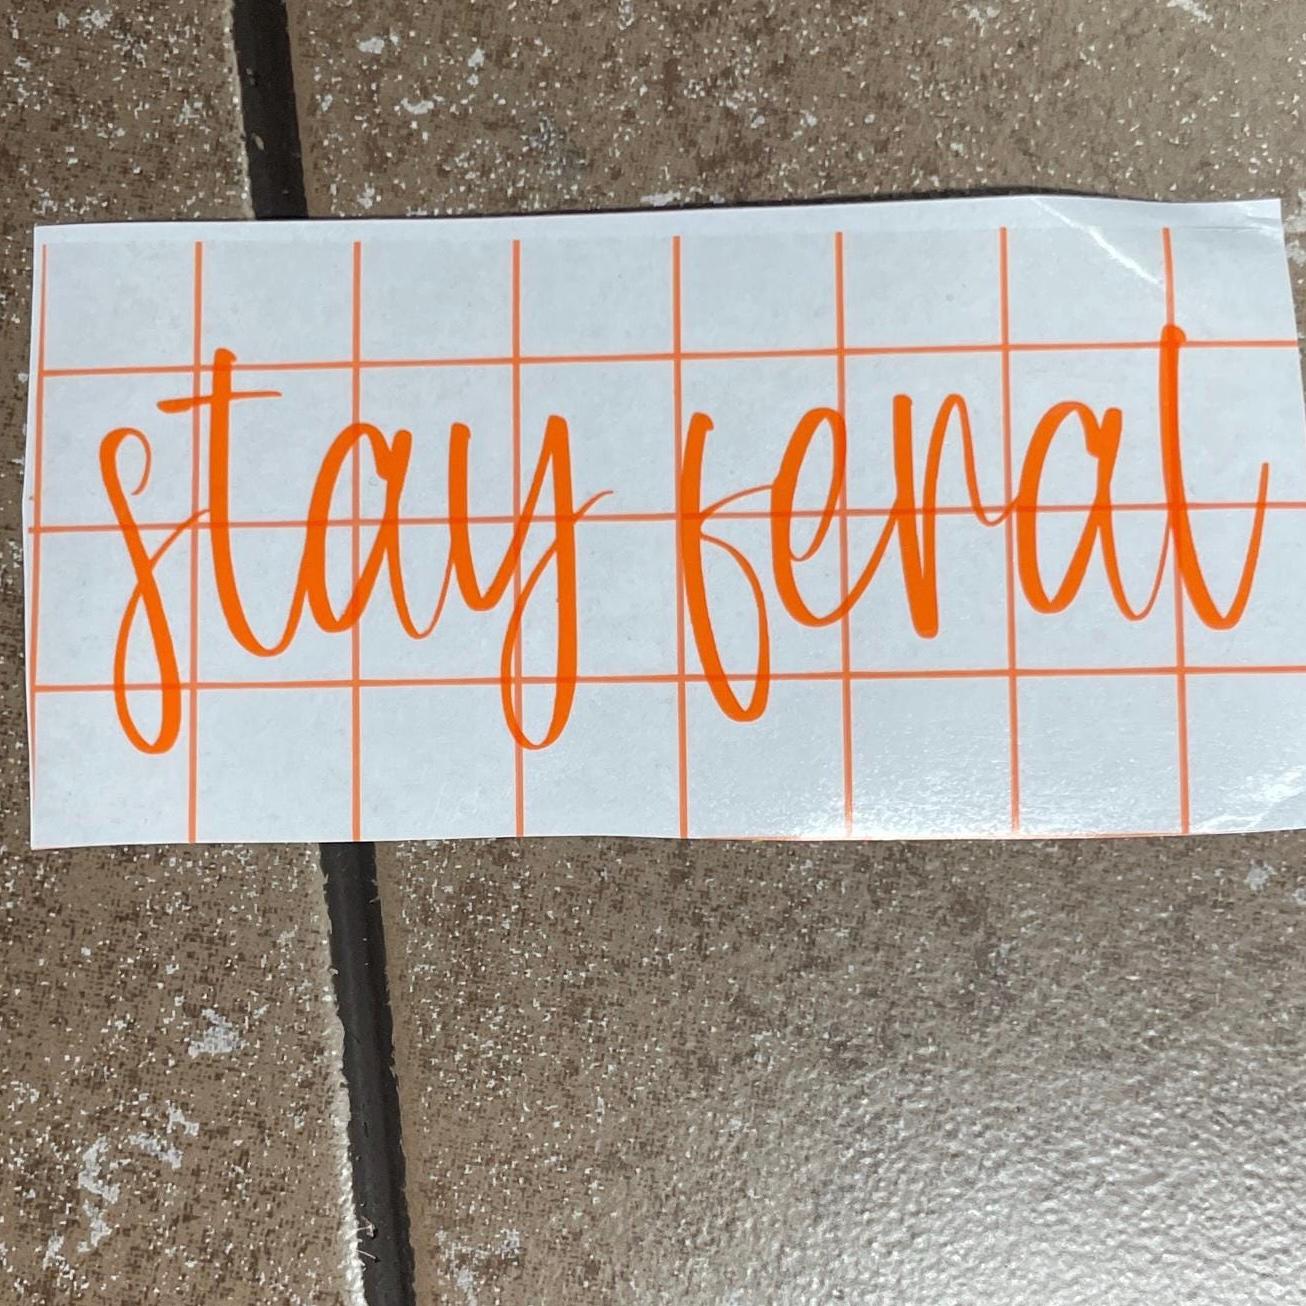 stay feral